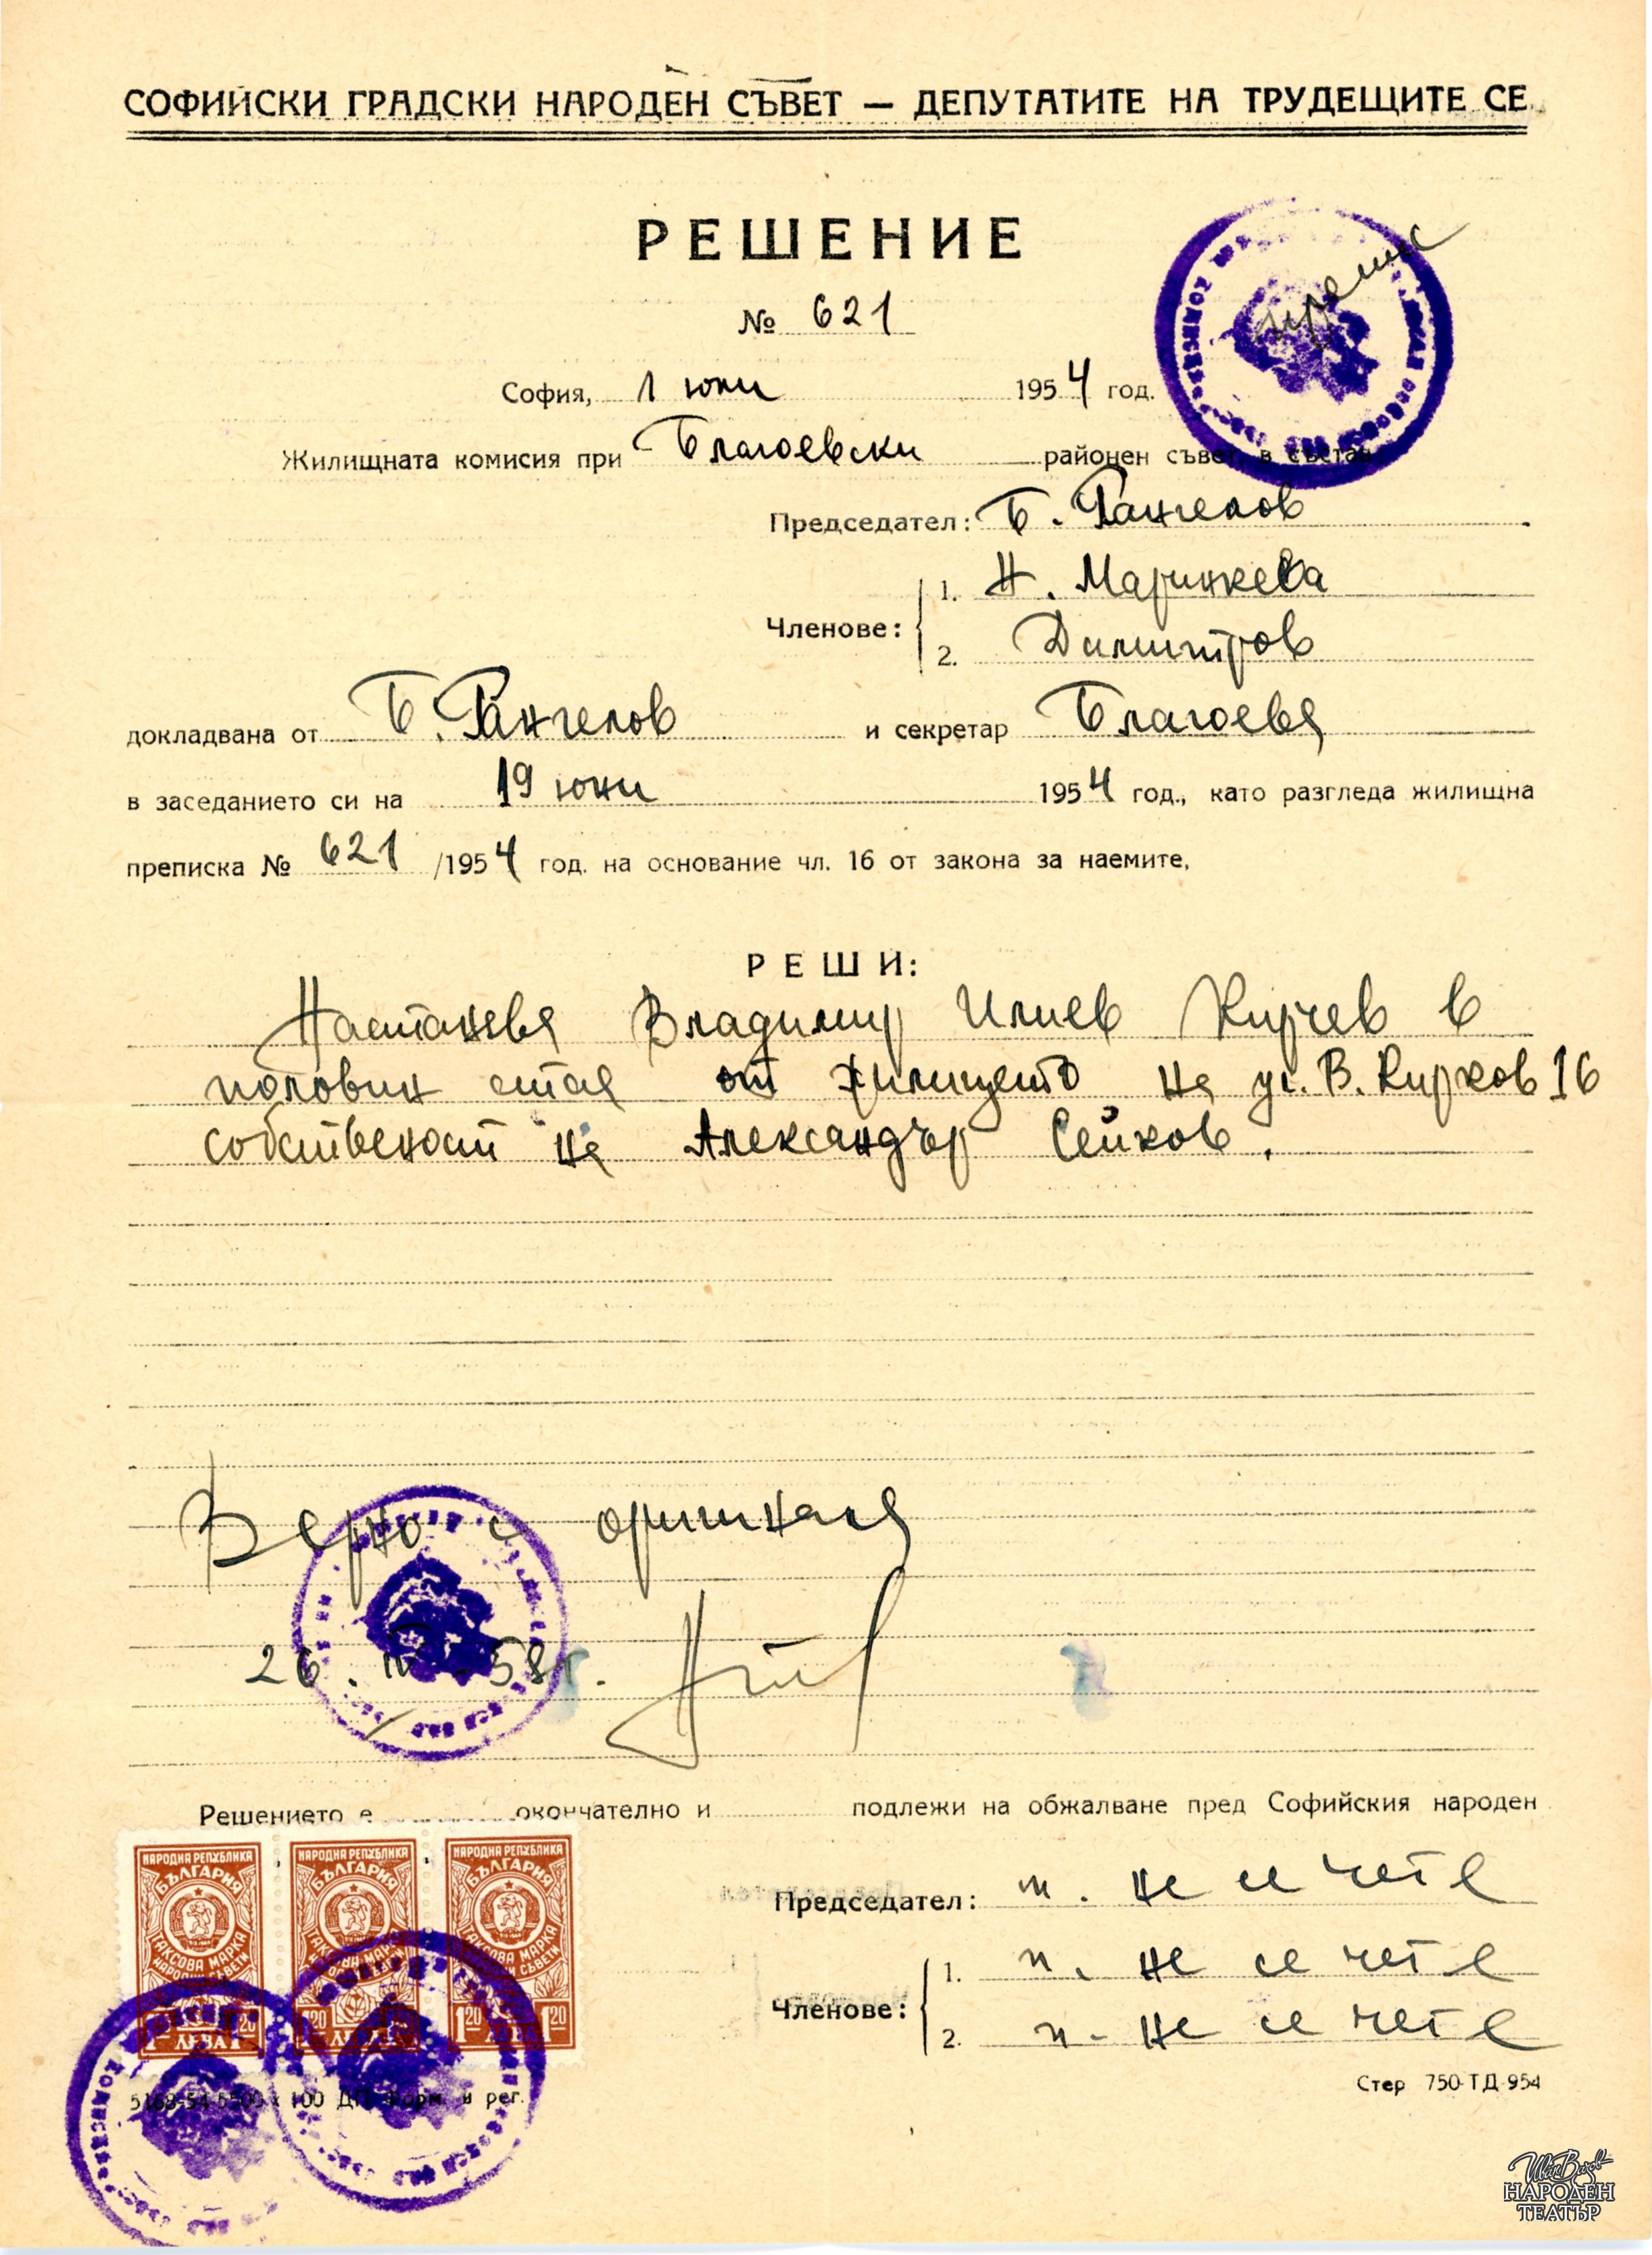 СОФИЙСКИ ГРАДСКИ НАРОДЕН СЪВЕТ — ДЕПУТАТИТЕ НА ТРУДЕЩИТЕ СЕ
РЕШЕНИЕ
№ 621
препис
София, 1 юни 1954 год.
Жилищната комисия при Благоевски районен съвет, в състав
Председател: Б. Рангелов
Членове:
1. Н. Маринкева
2. Димитров
докладвана от Б. Рангелов и секретар Благоева
в заседанието си на 19 юни 1954 год., като разгледа жилищна
преписка № 621 /1954 год. на основание чл. 16 от закона за наемите,
РЕШИ:
Настанява Владимир Илиев Кирчев в
половин стая от жилището на ул. В. Кирков 16
собственост на Александър Сейков.
Верно с оригинала
26. 58г.
Решението е окончателно и подлежи на обжалване пред Софийския народен
Председател: п. не се чете
Членове:
1. п. не се чете
2. п. не се чете
НАРОДНА РЕПУБЛИКА БЪЛГАРИЯ ТАКСОВА МАРКА НАРОДНИ СЪВЕТИ 1 20 ЛЕВА 1 20
НАРОДНА РЕПУБЛИКА БЪЛГАРИЯ ТАКСОВА МАРКА НАРОДНИ СЪВЕТИ 1 20 ЛЕВА 1 20
НАРОДНА РЕПУБЛИКА БЪЛГАРИЯ ТАКСОВА МАРКА НАРОДНИ СЪВЕТИ 1 20 ЛЕВА 1 20
5168-54-5500 х 100 ДП Форм. и рег.
Стер 750-ТД-954
Иван Вазов
НАРОДЕН
ТЕАТЪР